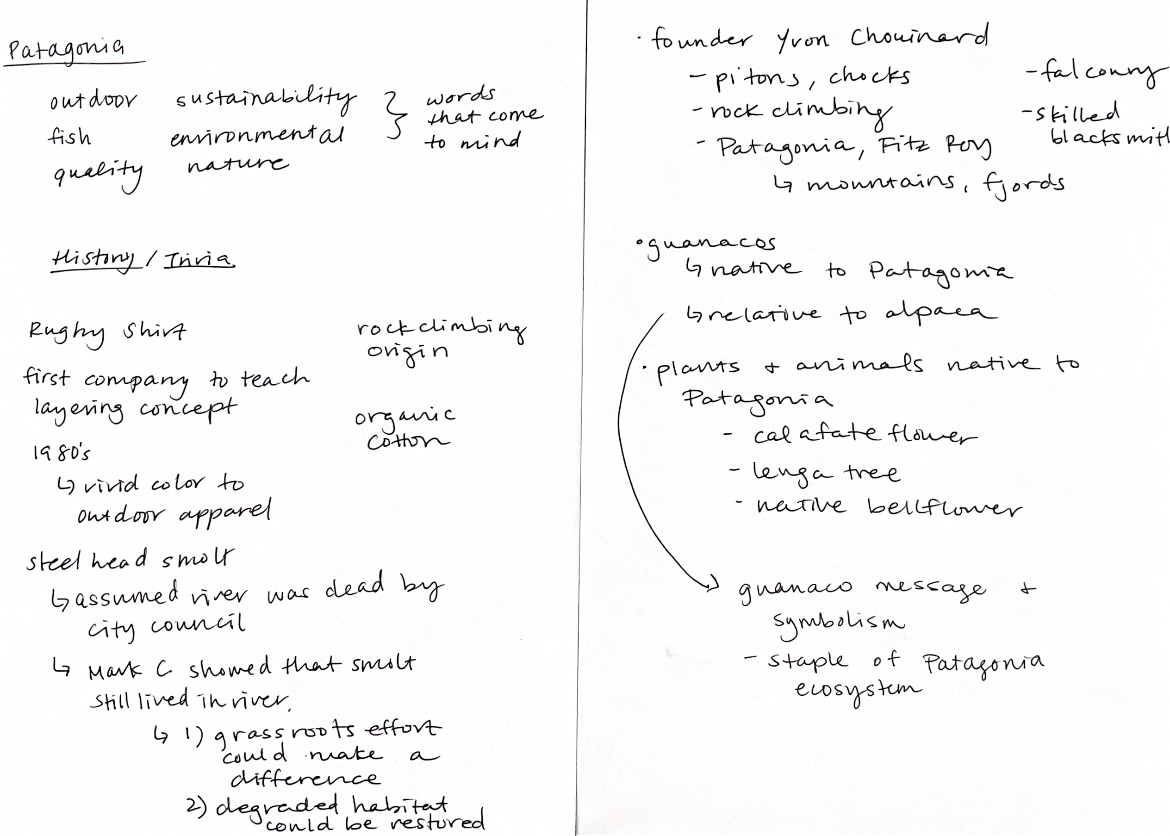 Patagonia
outdoor sustainability
fish environmental
quality nature
words
that come
to mind
History / Trivia
Rugby Shirt
first company to teach
layering concept
1980's
↳ vivid color to
outdoor apparel
rock climbing
origin
organic
cotton
steel head smolt
↳ assumed river was dead by
city council
↳ Mark C showed that smolt
still lived in river.
↳ 1) grassroots effort
could make a
difference
2) degraded habitat
could be restored
· founder Yvon Chouinard
- pitons, chocks
- rock climbing
- Patagonia, Fitz Roy
↳ mountains, fjords
- falconry
- skilled
blacksmith
· guanacos
↳ native to Patagonia
↳ relative to alpaca
· plants + animals native to
Patagonia
- calafate flower
- lenga tree
- native bellflower
guanaco message +
symbolism
- staple of Patagonia
ecosystem